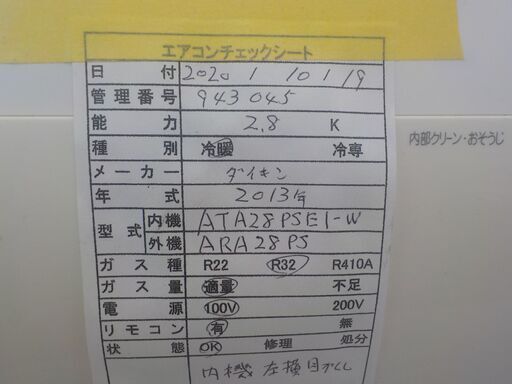 エアコンチェックシート
日 付 2020 / 10 / 19
管理番号 943045
能 力 2.8 K
内部クリーン・おそうじ
種 別 冷暖 冷専
メーカー ダイキン
年 式 2013年
型式 内機 ATA28PSE1-W
外機 ARA28PS
ガス種 R22 R32 R410A
ガス量 適量 不足
電 源 100V 200V
リモコン 有 無
状 態 OK 修理 処分
内機 左横目かくし